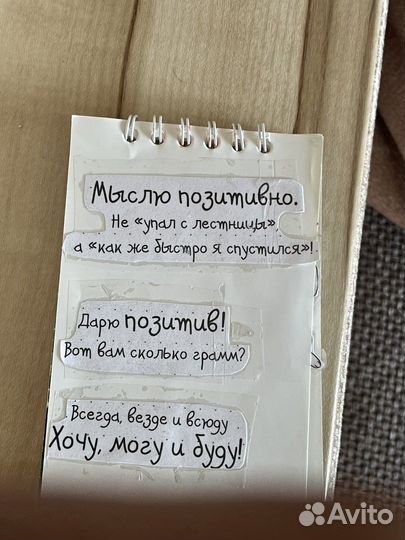 Мыслю позитивно.
Не «упал с лестницы»,
а «как же быстро я спустился»!
Дарю позитив!
Вот вам сколько грамм?
Всегда, везде и всюду
Хочу, могу и буду!
Avito